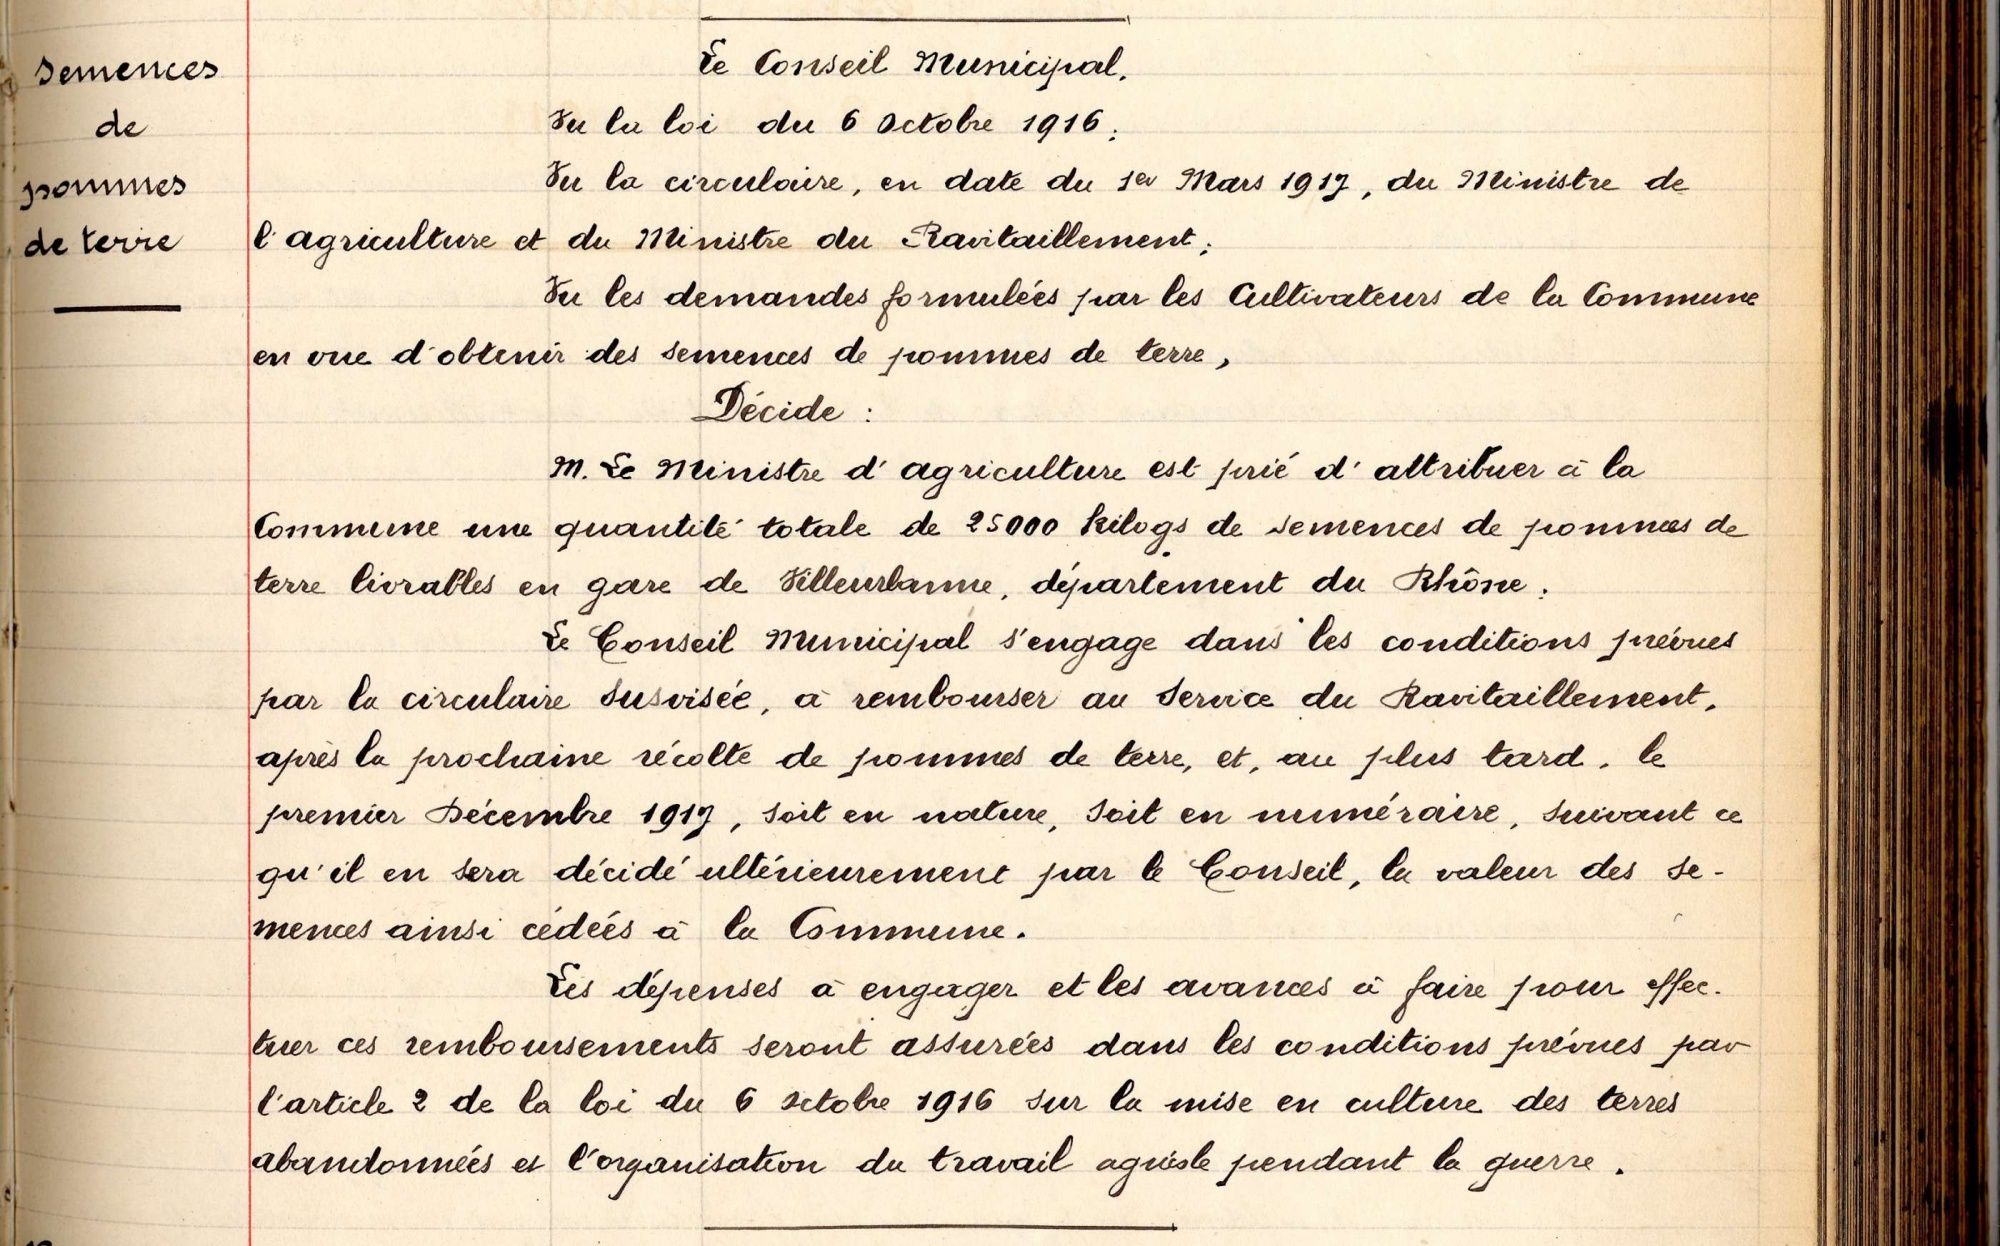 Semences
de
pommes
de terre
Le Conseil Municipal,
Vu la loi du 6 Octobre 1916;
Vu la circulaire, en date du 1er Mars 1917, du Ministre de
l'agriculture et du Ministre du Ravitaillement;
Vu les demandes formulées par les Cultivateurs de la Commune
en vue d'obtenir des semences de pommes de terre,
Décide :
M. Le Ministre d'agriculture est prié d'attribuer à la
Commune une quantité totale de 25000 kilogs de semences de pommes de
terre livrables en gare de Villeurbanne, département du Rhône.
Le Conseil Municipal s'engage dans les conditions prévues
par la circulaire susvisée, à rembourser au Service du Ravitaillement,
après la prochaine récolte de pommes de terre, et, au plus tard, le
premier Décembre 1917, soit en nature, soit en numéraire, suivant ce
qu'il en sera décidé ultérieurement par le Conseil, la valeur des se-
mences ainsi cédées à la Commune.
Les dépenses à engager et les avances à faire pour effec-
tuer ces remboursements seront assurées dans les conditions prévues par
l'article 2 de la loi du 6 Octobre 1916 sur la mise en culture des terres
abandonnées et l'organisation du travail agricole pendant la guerre.